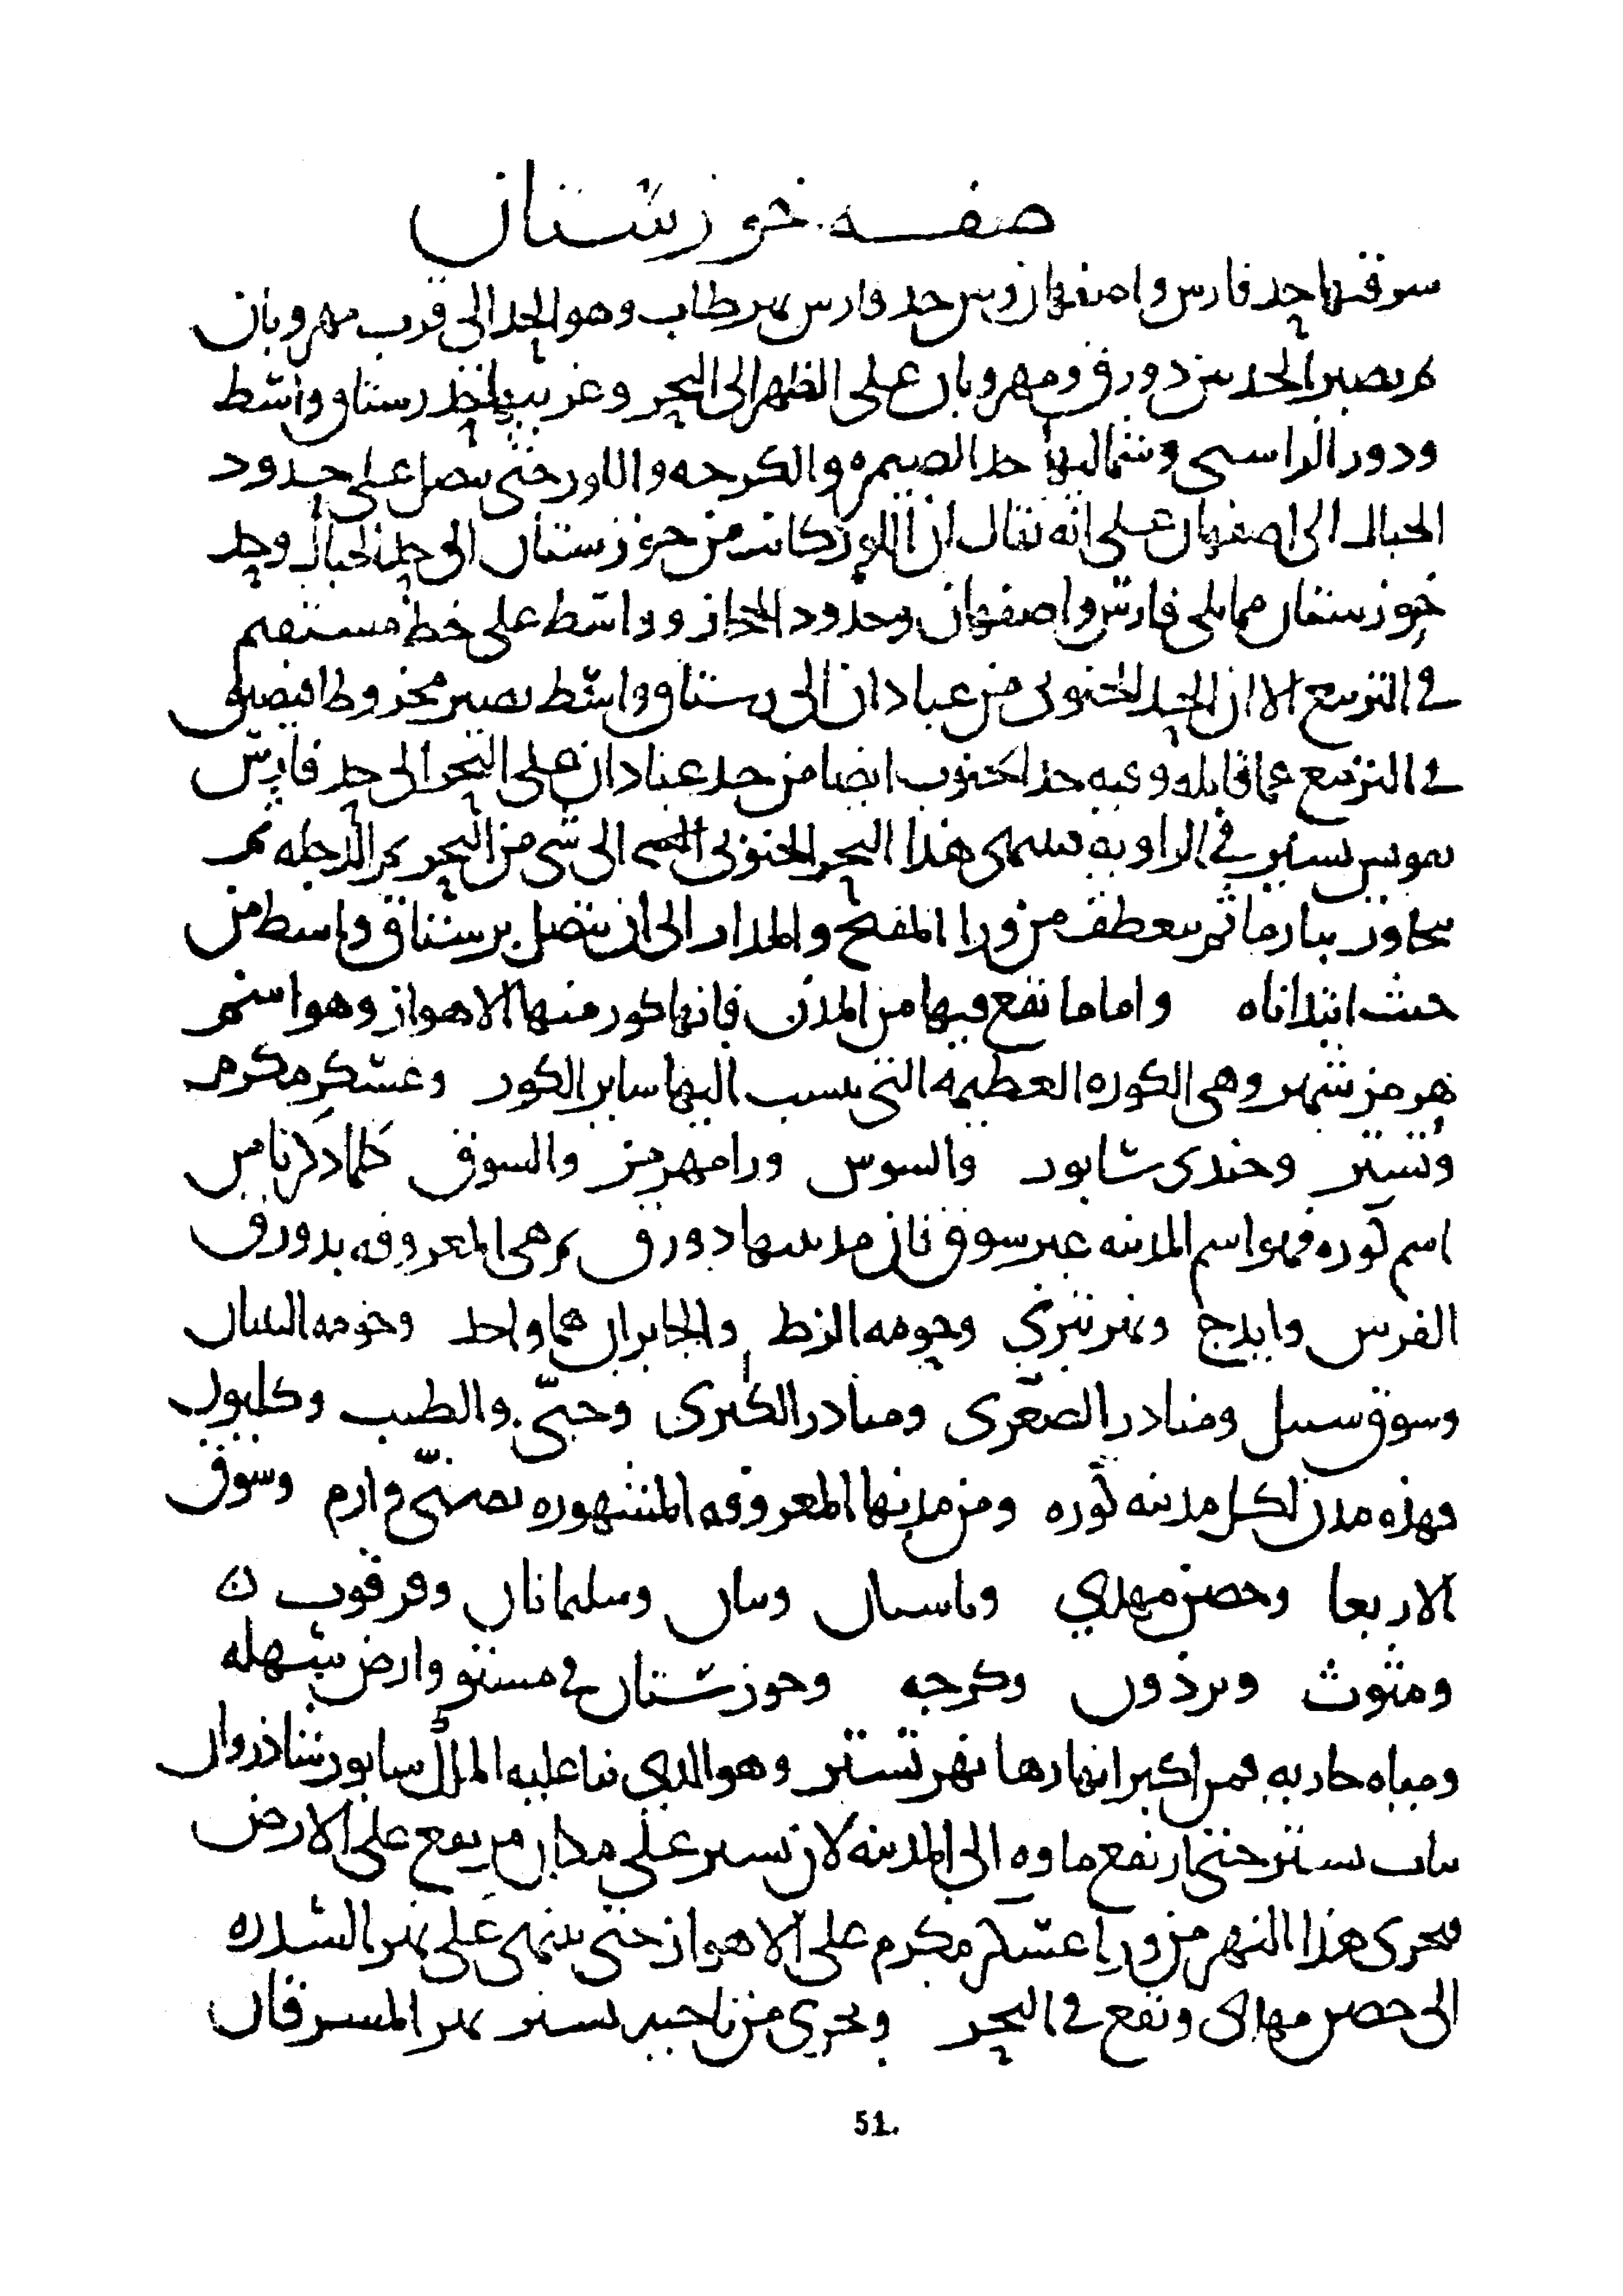 صفه خوزستان
شرقيها حد فارس واصفهان وبين حد فارس نهر طاب وهو الحد الى قرب مهروبان
ثم يصير الحد بين دورق ومهروبان على الظهر الى البحر وغربيها حد رستاق واسط
ودور الراسبي وشماليها حد الصيمره والكرجه واللور حتى يتصل على حدود
الجبال الى اصفهان على انه يقال ان اللور كانت من خوزستان الى حد الجبال وحد
خوزستان مما يلي فارس واصفهان وحدود الجبال وواسط على خط مستقيم
في التربيع الا ان الحد الجنوبي من عبادان الى رستاق واسط يصير مخروطا فيضيق
في التربيع عما قابله وفيه حد الجنوب ايضا من حد عبادان على البحر الى حد فارس
تقويس يسير في الزاويه يسمى هذا البحر الجنوبي الى شي من البحر ثم الى الدجله ثم
يجاوز بيان ثم ينعطف من ورا المفتح والمذار الى ان يتصل برستاق واسط من
حيث ابتداناه واما ما يقع فيها من المدن فانها كور منها الاهواز وهو اسم
هرمز شهر وهي الكوره العظيمه التي ينسب اليها ساير الكور وعسكر مكرم
وتستر وجندي شابور والسوس ورامهرمز والسوق كلما ذكرنا من
اسم كوره فهو اسم المدينه غير سوق فان مدينتها دورق ثم هي المعروفه بدورق
الفرس وايذج ونهر تيري وحومه الزط والجايزان هما واحد وحومه البنيان
وسوق سنبيل ومناذر الصغرى ومناذر الكبرى وجبّى والطيب وكليوان
وهذه مدن لكل مدينه كوره ومن مدنها المعروفه المشهوره بصنّى وازم وسوق
الاربعا وحصن مهدي وباسيان وبيان وسليمانان وقرقوب ن
ومتوث وبرذون وكرجه وخوزستان في مستو وارض سهله
ومياه جاريه فمن اكبر انهارها نهر تستر وهو الذي بنا عليه الملك سابور شاذروان
بباب تستر حتى ارتفع ماوه الى المدينه لان تستر على مكان مرتفع على الارض
فيجرى هذا النهر من ورا عسكر مكرم على الاهواز حتى ينتهى على نهر السدره
الى حصن مهدي ويقع في البحر ويجري من ناحيه تستر نهر المسرقان
51.